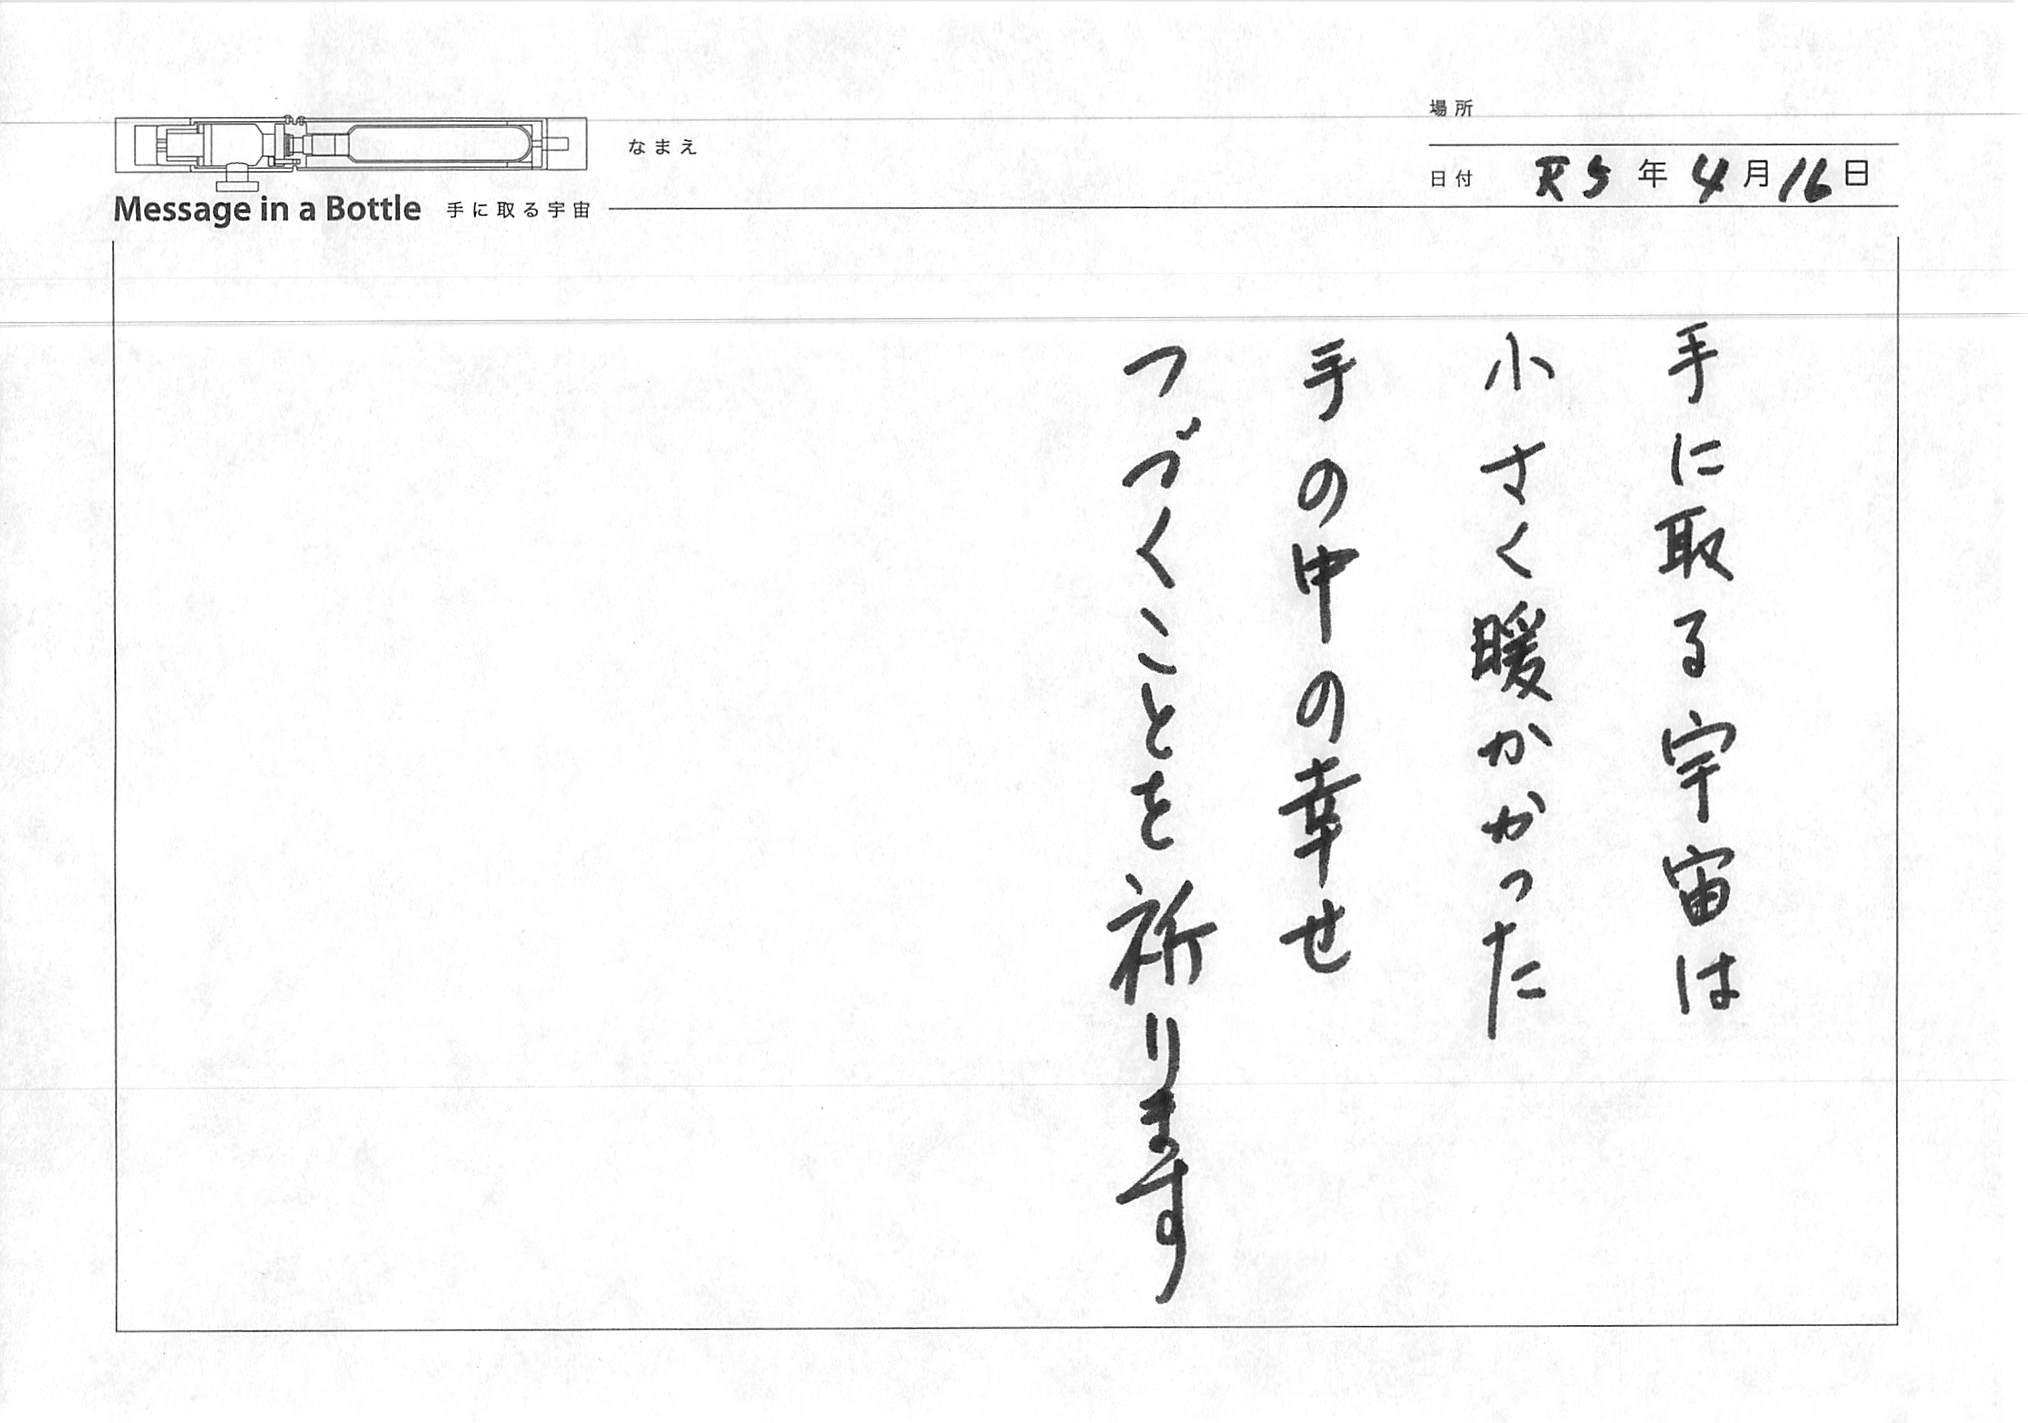 場所
なまえ
日付 R5年4月16日
Message in a Bottle 手に取る宇宙
手に取る宇宙は
小さく暖かかった
手の中の幸せ
つづくことを祈ります